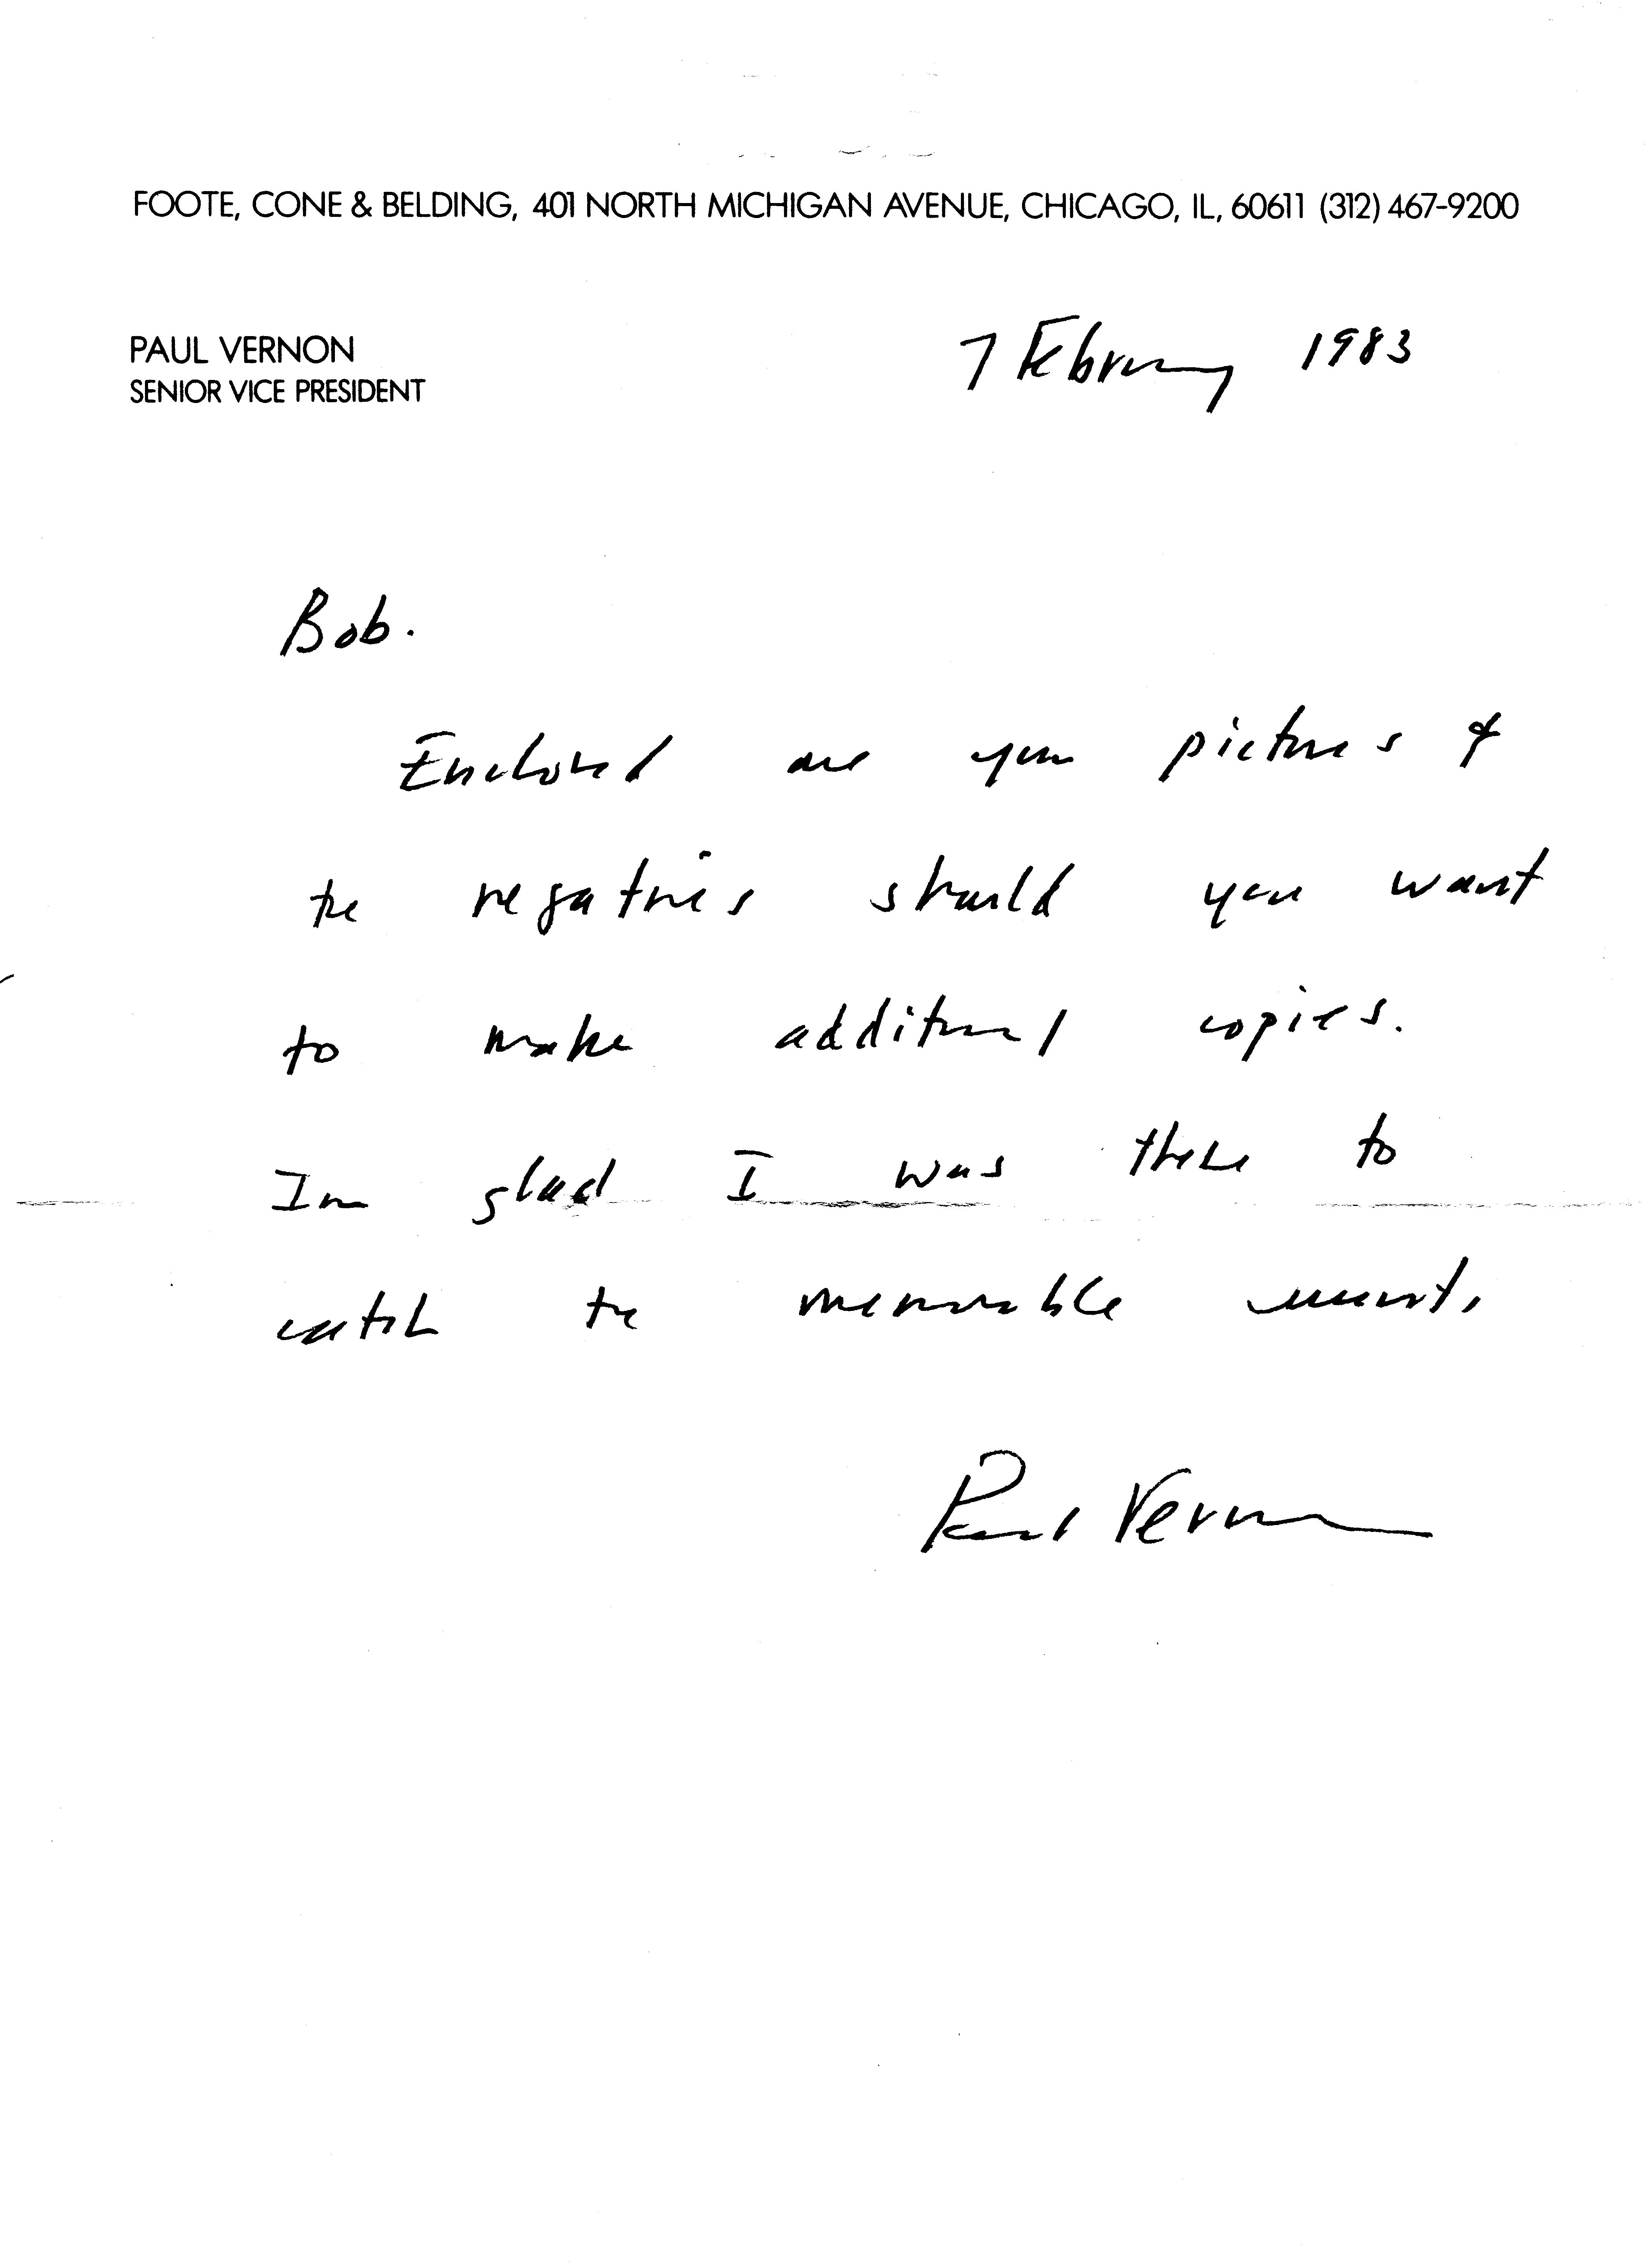 FOOTE, CONE & BELDING, 401 NORTH MICHIGAN AVENUE, CHICAGO, IL, 60611 (312) 467-9200
PAUL VERNON
SENIOR VICE PRESIDENT
7 February 1983
Bob.
Enclosed are your pictures &
the negatives should you want
to make additional copies.
Im glad I was there to
catch the memorable moment.
Paul Vernon